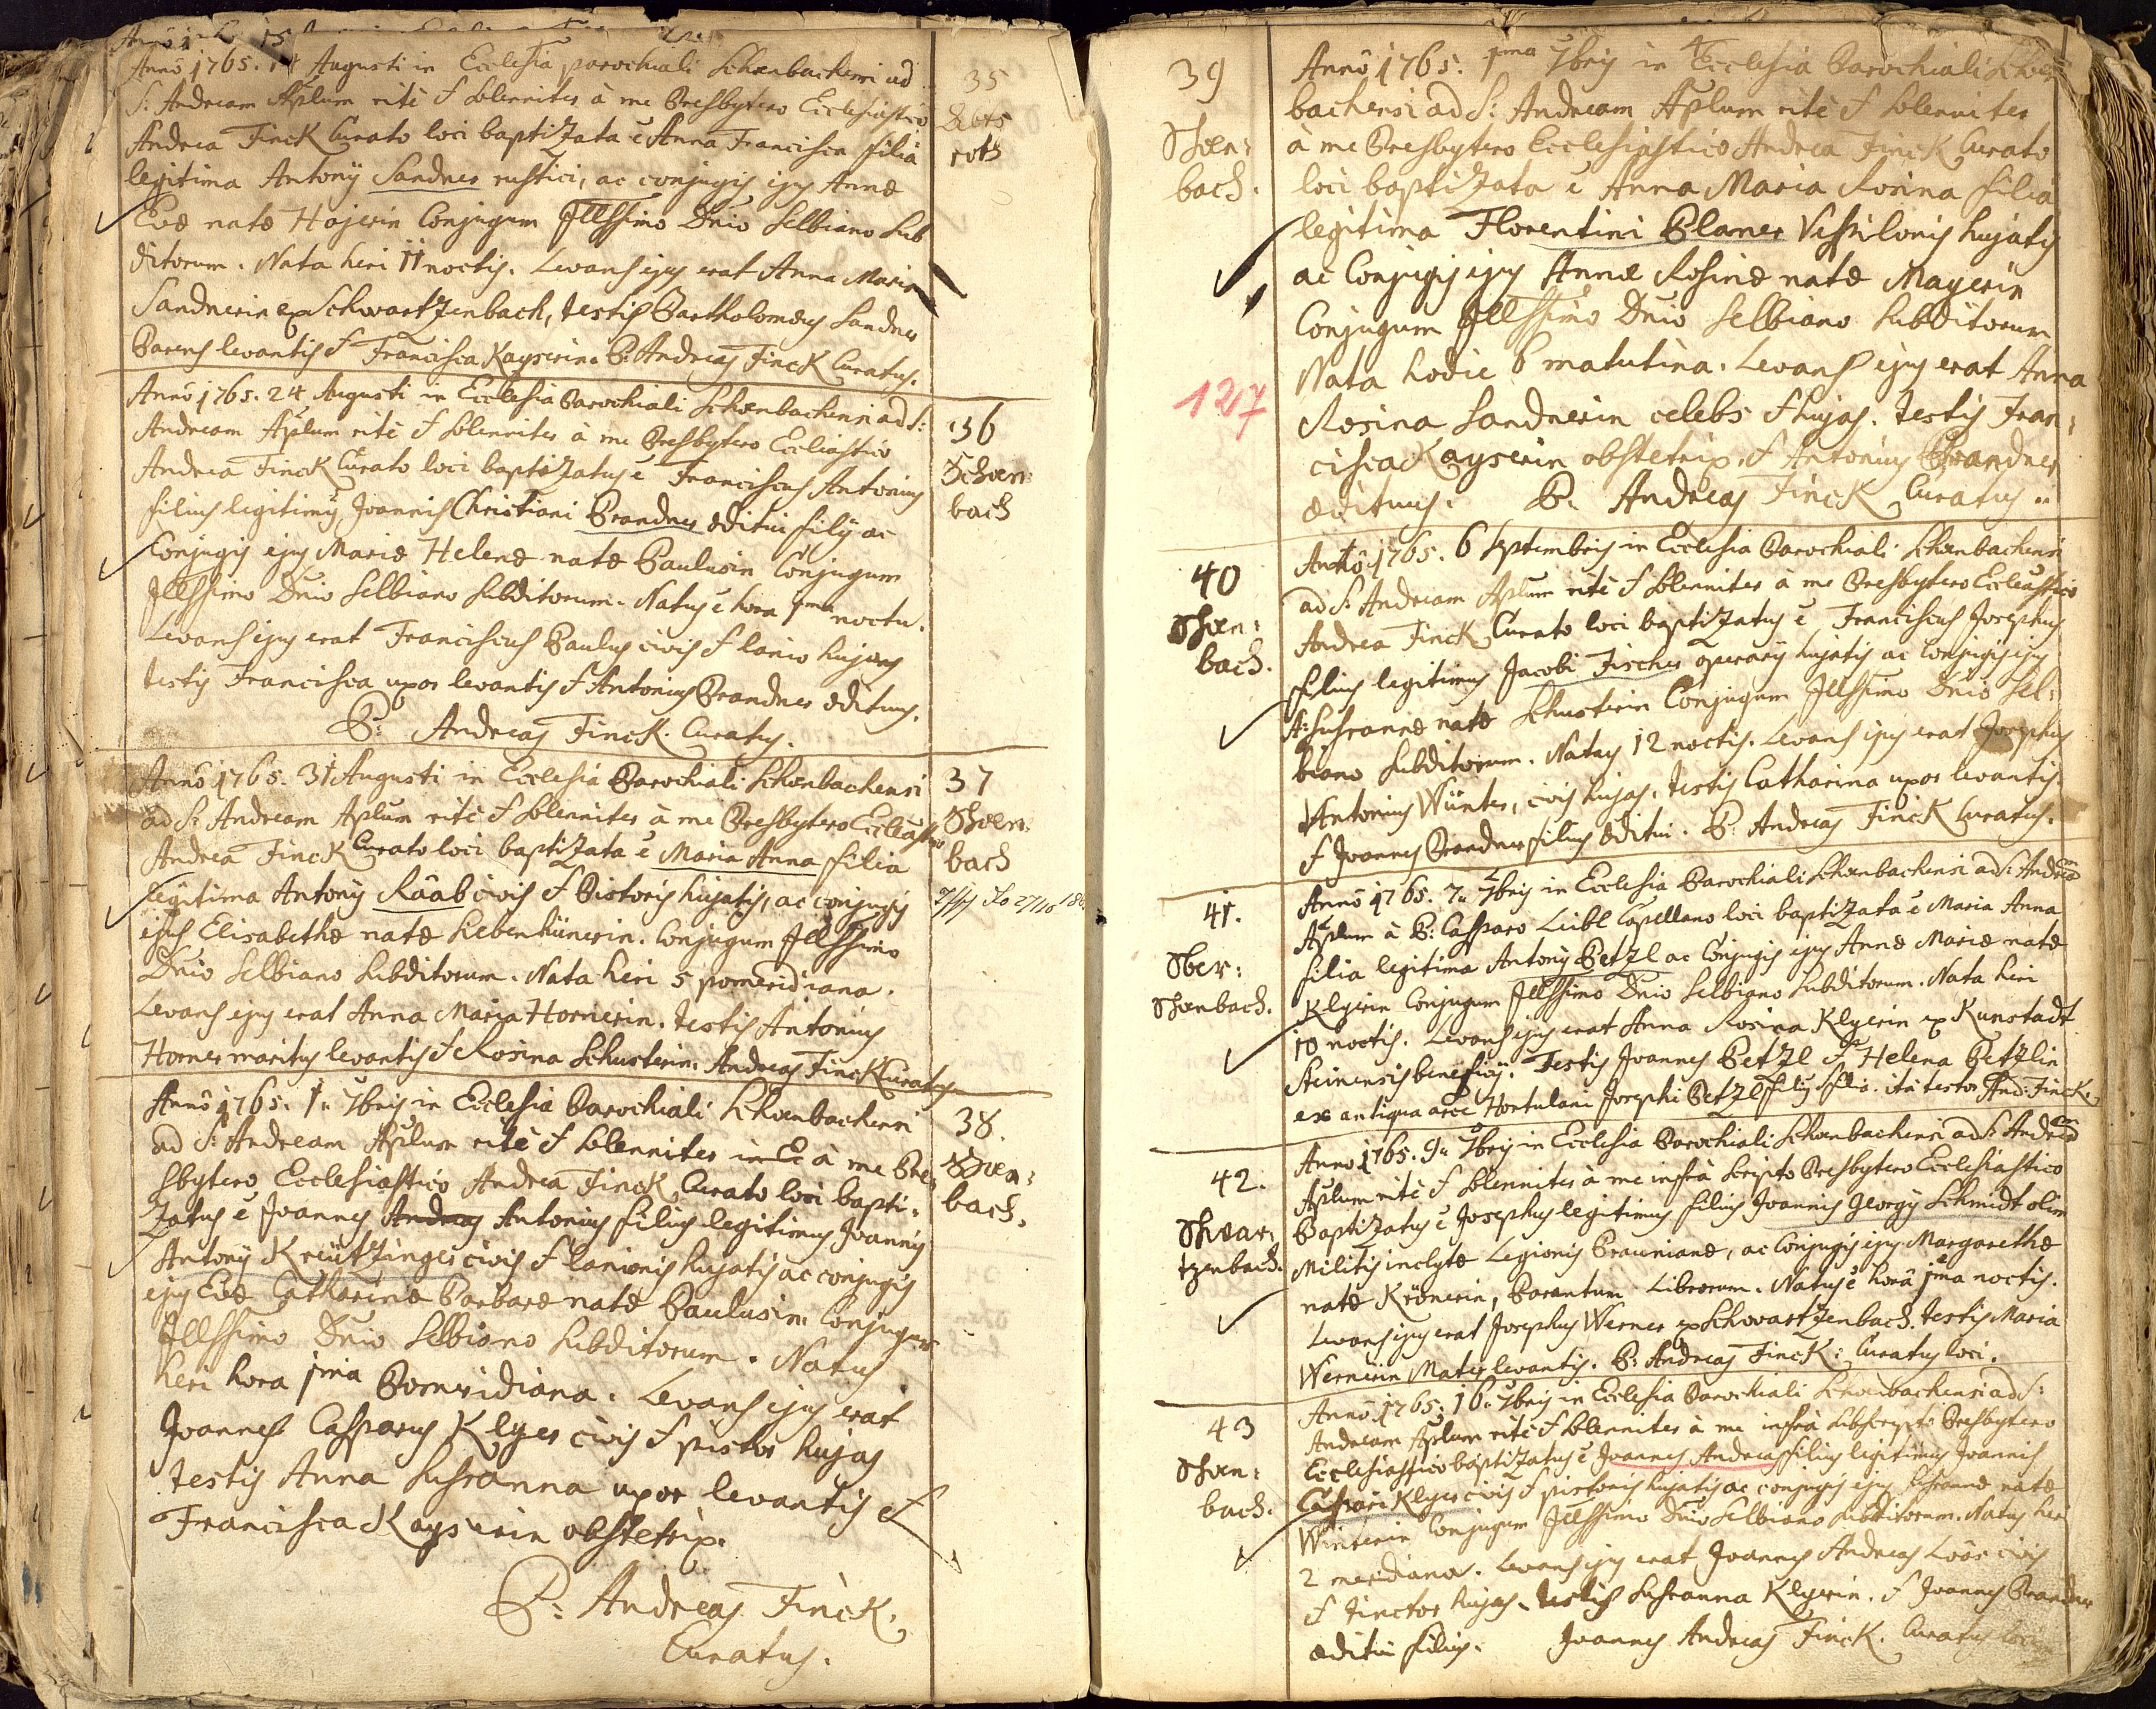 Anno 1765. 14 Augusti in Ecclesia parochiali Schœnbachensi ad
S: Andream Aplum ritè & solenniter à me Presbytero Ecclesiastico
Andrea Finck Curato loci baptizata ê Anna Francisca filia
legitima Antonÿ Sandner rustici, ac conjugis ejus Annæ
Evæ natæ Hojerin Conjugum Illssimo Dnio Selbiano Sub
ditorum. Nata heri 11 noctis. Levans ejus erat Anna Maria
Sandnerin ex Schwartzenbach, testis Bartholomæus Sandner
Parens levantis & Francisca Kayserin. P. Andreas Finck Curatus.
35
roth
Anno 1765. 24 Augusti in Ecclesia Parochiali Schœnbachensi ad S:
Andream Aplum ritè & solenniter à me Presbytero Eccliastico
Andrea Finck Curato loci baptizatus ê Franciscus Antonius
filius legitimus Joannis Christiani Brandner æditui filÿ ac
Conjugis ejus Mariæ Helenæ natæ Paulusin Conjugum
Illssimo Dnio Selbiano Subditorum. Natus ê hora 1ma noctu.
Levans ejus erat Franciscus Paulus civis & lanio hujas
testis Francisca uxor levantis & Antonius Brandner ædituus.
P: Andreas Finck. Curatus.
36
Schœn:
bach
Anno 1765. 31 Augusti in Ecclesia Parochiali Schœnbachensi
ad S: Andream Aplum ritè & solenniter à me Presbytero Eccleastico
Andrea Finck Curato loci baptizata ê Maria Anna filia
legitima Antonÿ Rââb civis & Pistoris hujatis, ac conjugis
ejus Elisabethæ natæ Liebenhünerin. Conjugum Illssimo
Dnio Selbiano Subditorum. Nata heri 5 pomeridiana.
Levans ejus erat Anna Maria Hornerin. testis Antonius
Horner maritus levantis & Rosina Schusterin. Andreas Finck Curatus
37
Schœn:
bach
Anno 1765. 1. 7bris in Ecclesia Parochiali Schœnbachensi
ad S: Andream Aplum ritè & solenniter in Ec à me Pre
sbytero Ecclesiastico Andrea Finck Curato loci bapti:
zatus ê Joannes Andreas Antonius filius legitimus Joannis
Antonÿ Kreützinger civis & lanionis hujatis ac conjugis
ejus Evæ Catharinæ Barbaræ natæ Paulusin. Conjugum
Illssimo Dnio Selbiano Subditorum. Natus
heri hora 1ma Pomeridiana. Levans ejus erat
Joannes Casparus Klyer civis & pistor hujas
testis Anna Susanna uxor levantis &
Francisca Kayserin obstetrix.
P: Andreas Finck.
Curatus.
38.
Schœn:
bach.
39
Schœn:
bach.
127
Anno 1765. 1ma 7bris in Ecclesia Parochiali Schœn
bachensi ad S: Andream Aplum ritè & solenniter
à me Presbytero Ecclesiastico Andrea Finck Curato
loci baptizata ê Anna Maria Rosina filia
legitima Florentini Planer Vespilonis hujatis
ac Conjugis ejus Annæ Rosinæ natæ Mayerin
Conjugum Illssimo Dnio Selbiano Subditorum
Nata hodie 6 matutina. Levans ejus erat Anna
Rosina Sandnerin celebs & hujas. testis Fran:
cisca Kayserin obstetrix. & Antonius Brandner
ædituus. P. Andreas Finck Curatus.
40
Schœn:
bach.
Anno 1765. 6 Septembris in Ecclesia Parochiali Schœnbachensi
ad S: Andream Aplum ritè & solenniter à me Presbytero Eccleastico
Andrea Finck Curato loci baptizatus ê Franciscus Josephus
filius legitimus Jacobi Fischer operarÿ hujatis ac Conjugis ejus
A: Susannæ natæ Schusterin Conjugum Illssimo Dnio Sel:
biano Subditorum. Natus 12 noctis. Levans ejus erat Josephus
Antonius Wünter, civis hujas. testis Catharina uxor levantis.
& Joannes Brandner filius æditui. P. Andreas Finck Curatus.
41.
Ober:
Schœnbach.
Anno 1765. 7. 7bris in Ecclesia Parochiali Schœnbachensi ad S: Andream
Aplum à P: Casparo Leibl Capellano loci baptizata ê Maria Anna
filia legitima Antonÿ Petzl ac Conjugis ejus Annæ Mariæ natæ
Klyerin Conjugum Illssimo Dnio Selbiano Subditorum. Nata heri
10 noctis. Levans ejus erat Anna Rosina Klyerin ex Kunstadt
Steinensis beneficÿ. Testis Joannes Petzl & Helena Petzlin
ex antiqua arce Hortulani Josephi Petzl filÿ & filia. ita testor And: Finck.
42.
Schwar:
tzenbach.
Anno 1765. 9. 7bris in Ecclesia Parochiali Schœnbachensi ad S: Andream
Aplum ritè & solenniter à me infra scripto Presbytero Ecclesiastico
Baptizatus ê Josephus legitimus filius Joannis Georgÿ Schmidt olim
Militis inclytæ Legionis Braunianæ, ac Conjugis ejus Margarethæ
natæ Krönerin, Parentum Liberorum. Natus ê horâ 1ma noctis.
Levans ejus erat Josephus Werner ex Schwartzenbach. testis Maria
Wernerin Mater levantis. P: Andreas Finck: Curatus loci.
43
Schœn:
bach.
Anno 1765. 16. 7bris in Ecclesia Parochiali Schœnbachensi ad S:
Andream Aplum ritè & solenniter à me infra subscripto Presbytero
Ecclesiastico baptizatus ê Joannes Andreas filius legitimus Joannis
Caspari Klyer civis & pistoris hujatis ac conjugis ejus Susannæ natæ
Winterin Conjugum Illssimo Dnio Selbiano Subditorum. Natus heri
2 meridiana. Levans ejus erat Joannes Andreas Loôs civis
& tinctor hujas. testis Susanna Klyerin. & Joannes Brandner
æditui filius. Joannes Andreas Finck. Curatus loci